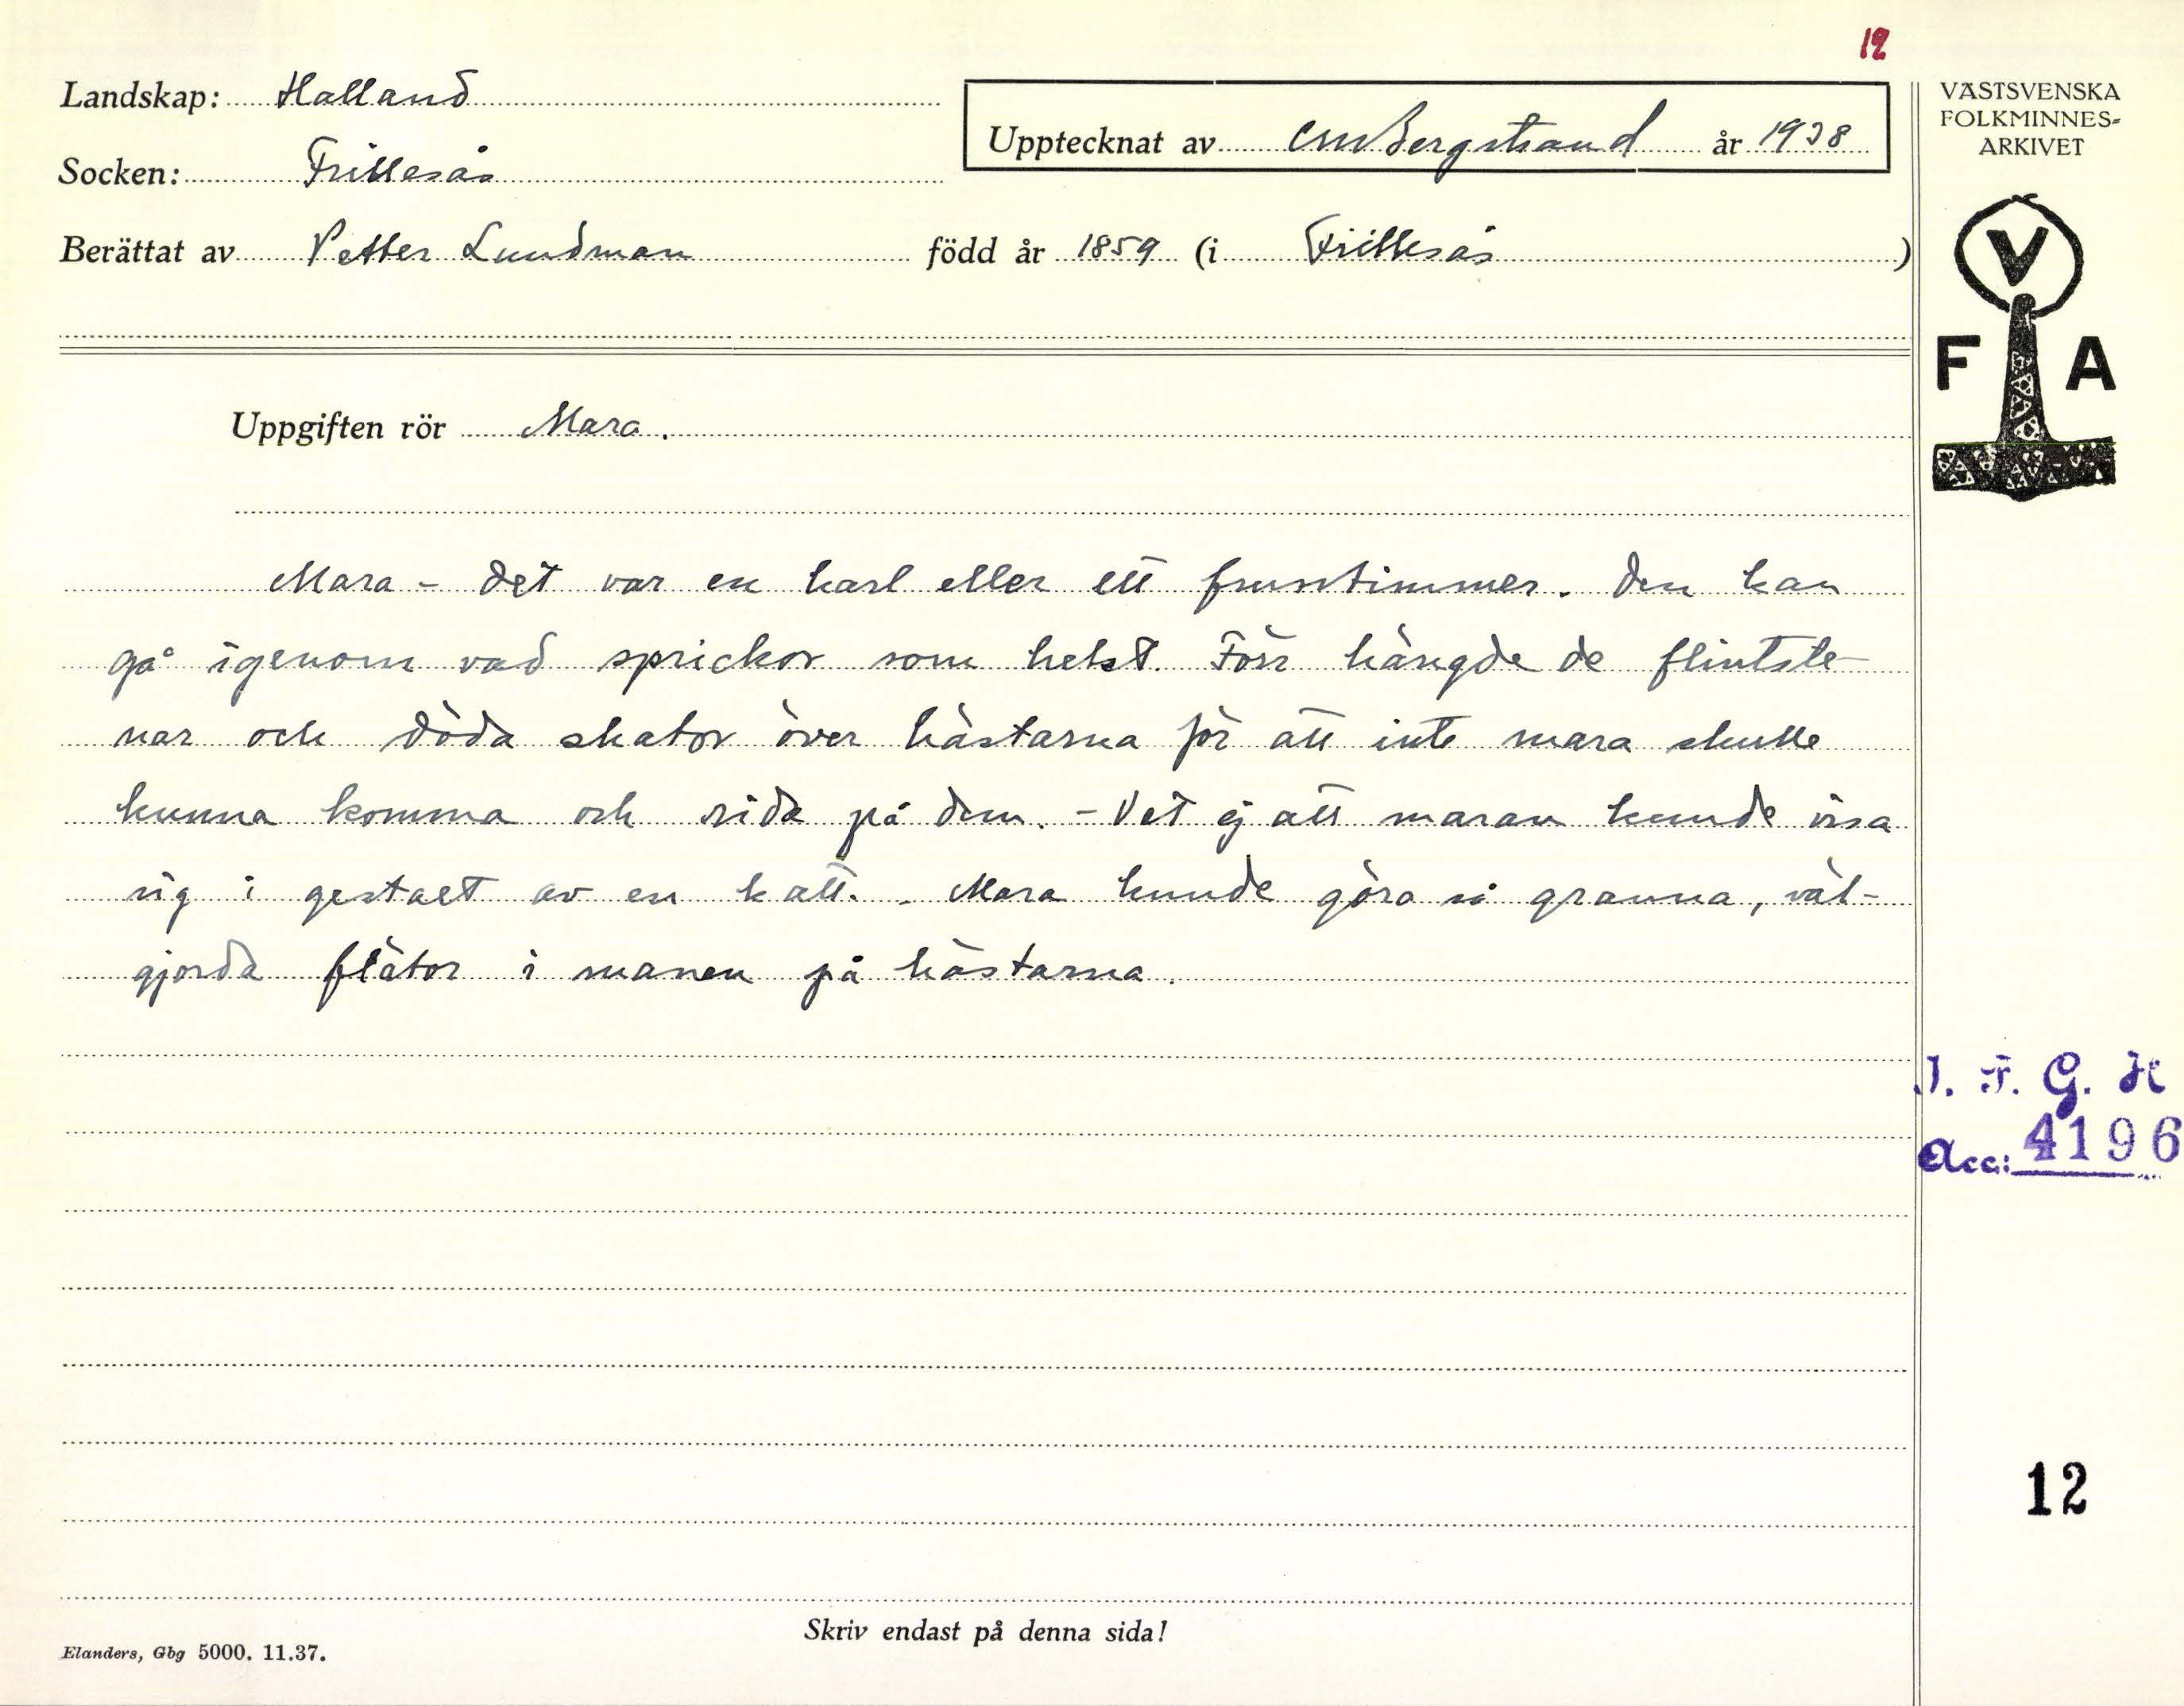 12
Landskap: Halland
Upptecknat av CM Bergstrand år 1938
Socken: Frillesås
Berättat av Petter Lundman född år 1859 (i Frillesås)
Uppgiften rör Mara.
Mara - det var en karl eller ett fruntimmer. Den kan
gå igenom vad sprickor som helst. Förr hängde de flintste-
nar och döda skator över hästarna för att inte mara skulle
kunna komma och rida på dem. - Vet ej att maran kunde visa
sig i gestalt av en katt. - Mara kunde göra så granna, väl-
gjorda flätor i manen på hästarna.
Skriv endast på denna sida!
Elanders, Gbg 5000. 11.37.
VÄSTSVENSKA
FOLKMINNES-
ARKIVET
V
F A
I. F. G. H
Acc: 4196
12